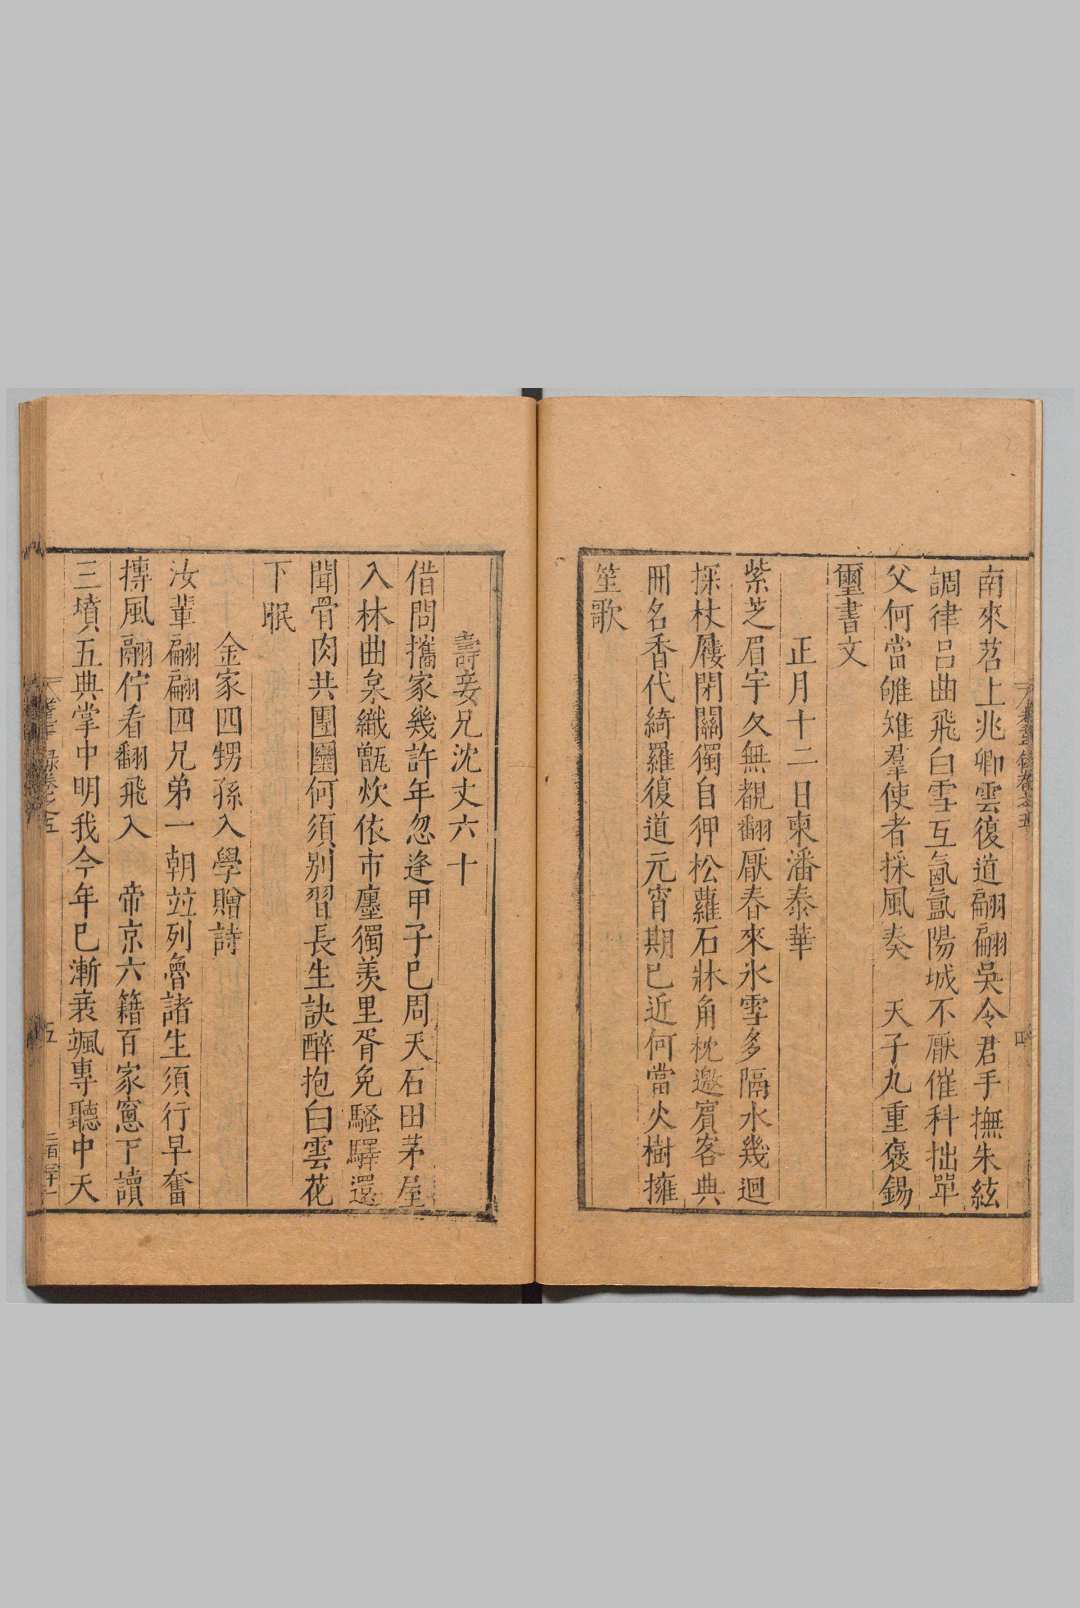 南來苕上兆卿雲復道翩翩吳令君手撫朱絃
調律呂曲飛白雪互氤氳陽城不厭催科拙單
父何當雊雉羣使者採風奏　天子九重褒錫
璽書文
正月十二日柬潘泰華
紫芝眉宇久無覩翻厭春來氷雪多隔水幾迴
探杖屨閉關獨自狎松蘿石牀角枕邀賓客典
冊名香代綺羅復道元宵期已近何當火樹擁
笙歌
壽妾兄沈丈六十
借問攜家幾許年忽逢甲子已周天石田茅屋
入林曲枲織甑炊依市廛獨羨里胥免騷驛還
聞骨肉共團圞何須別習長生訣醉抱白雲花
下眠
金家四甥孫入學贈詩
汝輩翩翩四兄弟一朝竝列魯諸生須行早奮
摶風翮佇看翻飛入　帝京六籍百家窓下讀
三墳五典掌中明我今年已漸衰颯專聽中天
卷之五
五